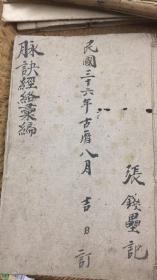 張錢壘記
民國三十六年古曆八月吉日訂
脉訣經絡彙編